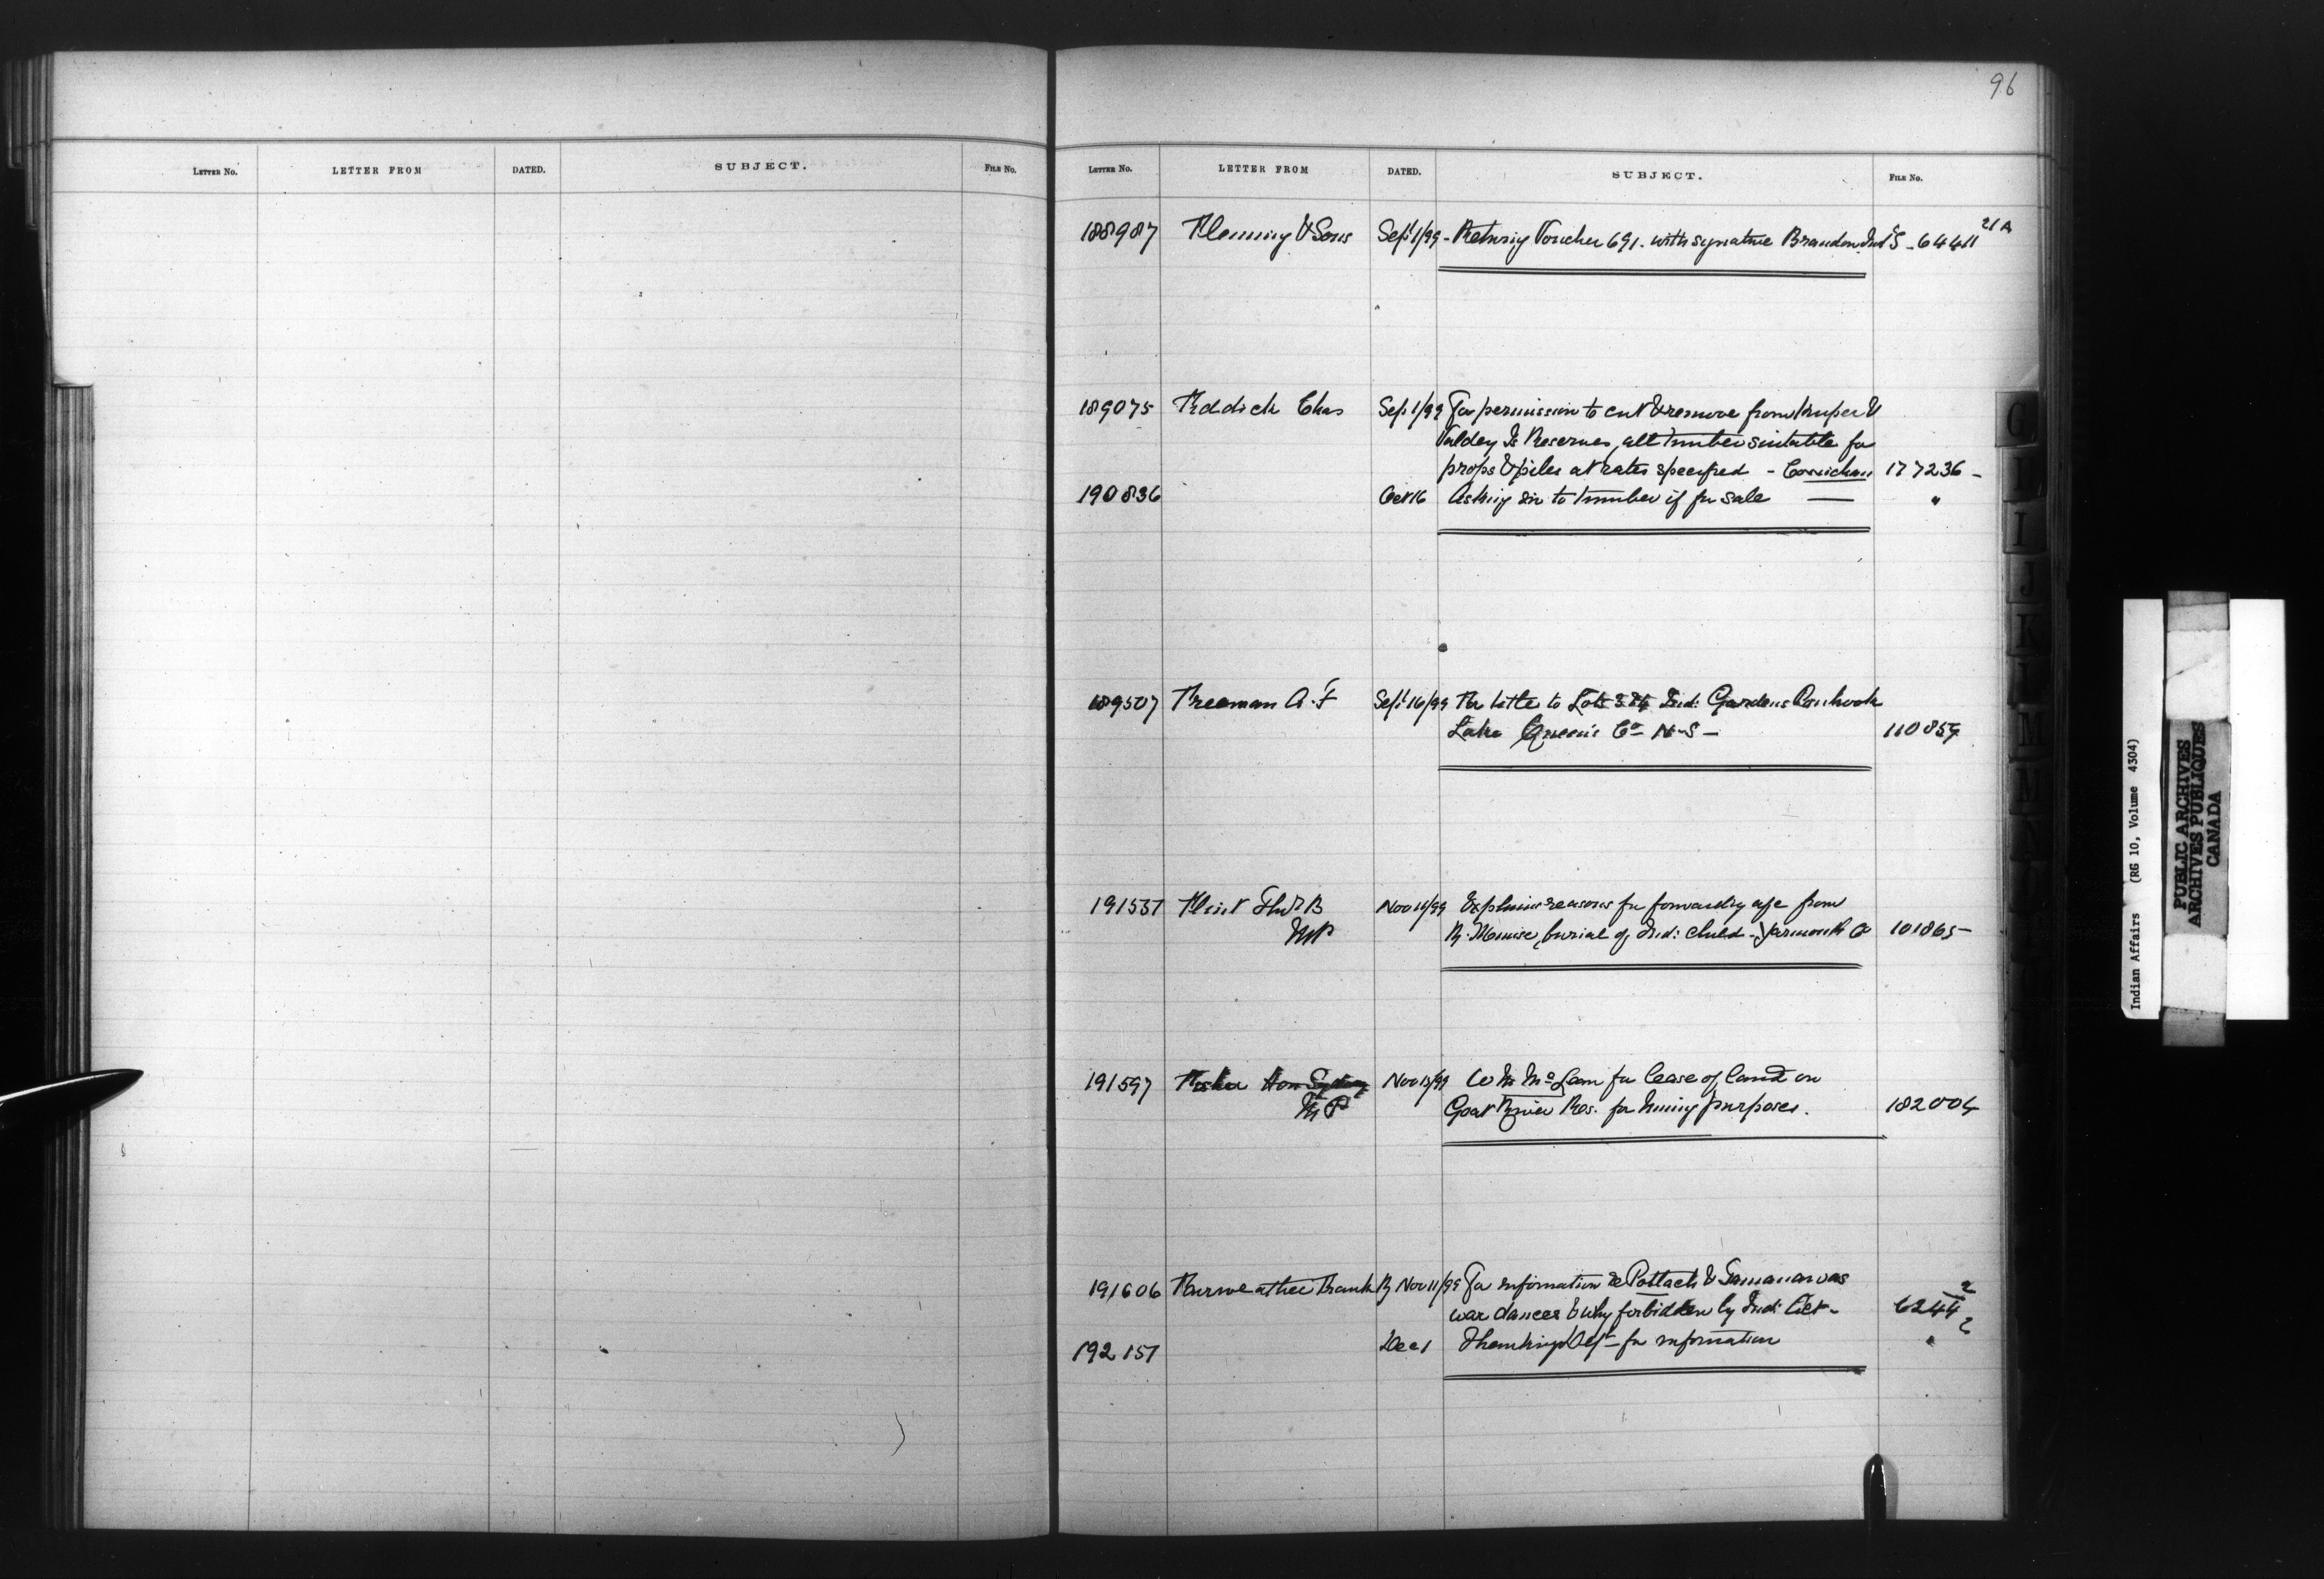 96
LETTER NO. LETTER FROM DATED. SUBJECT. FILE NO.
LETTER NO. LETTER FROM DATED. SUBJECT. FILE NO.
188987 Flemming & Sons Sept 1/99 - Returng Voucher 691. with signature Brandon Ind S - 6441 21A
189075 Fiddick Chas Sep 1/99 For permission to cut & remove from Kuper &
Valdez Is Reserves, all timber suitable for
props & piles at rates specified - Cowichan 177236 -
190836 Oct 16 Asking to timber if for sale — "
189507 Freeman A. F Sept 16/99 Re title to Lots 3 Ind: Gardens Ponhook
Lake Queen's Co N-S - 110859
191537 Flint Thos B Nov /99 Explains reasons for forwardg a/c from
MP burial of Ind: child - Yarmouth Co 101865 -
191597 Fisher Hon Sydney Nov 13/99 Wm McLean for lease of land on
MP Goat River Res. for mining purposes. 182004
191606 Fairweather Frank Nov 11/99 For information re Potlach & Tamanawas
war dances & why forbidden by Ind: Act - 6244 2
192151 Dec 1 Thanking Dept - for information "
G
I
J
K
L
M
Indian Affairs (RG 10, Volume 4304)
PUBLIC ARCHIVES
ARCHIVES PUBLIQUES
CANADA